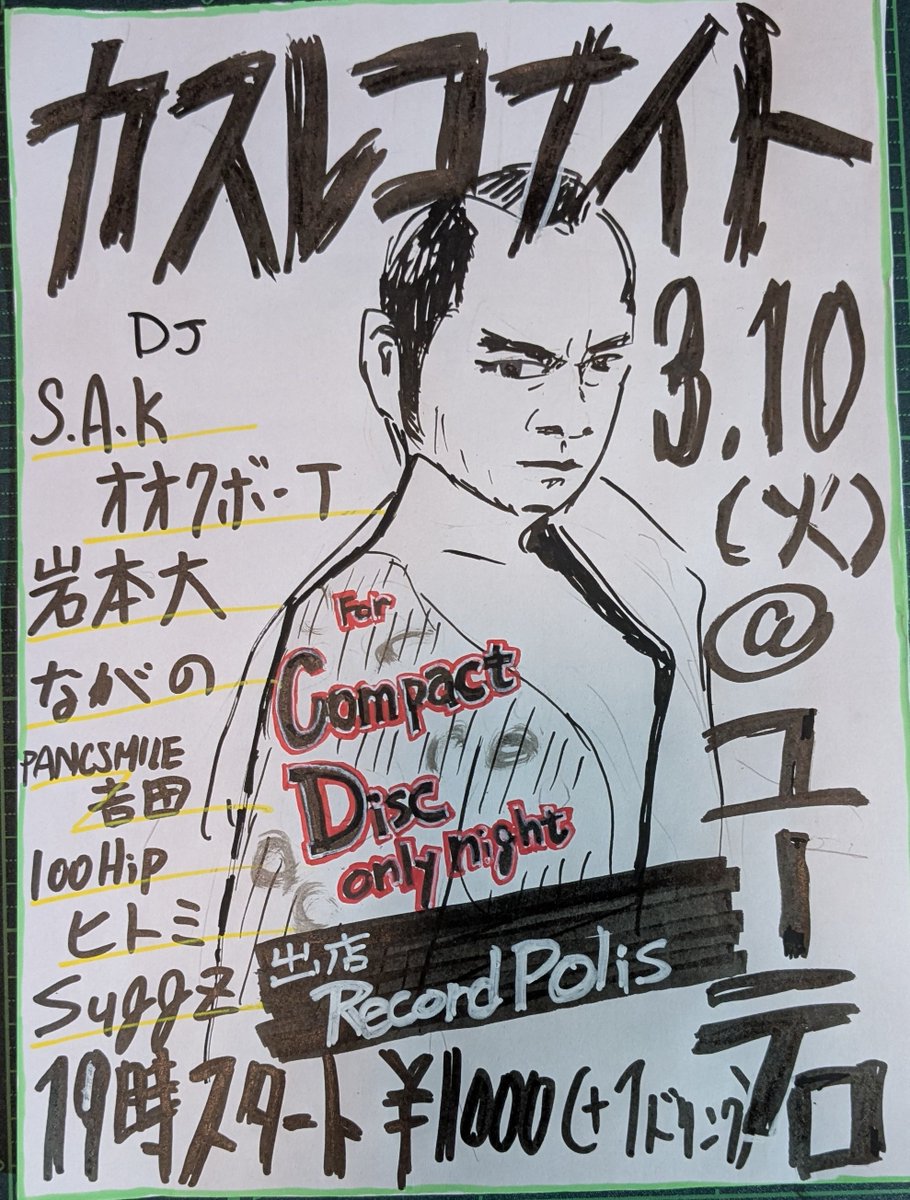 カスレコナイト
3.10
(火)
@
ユーテロ
DJ
S.A.K
オオクボーT
岩本大
ながの
PANCSMILE
吉田
100Hip
ヒトミ
Suggz
For
Compact
Disc
only night
出店
Record Polis
19時スタート ¥1000(+1ドリンク)